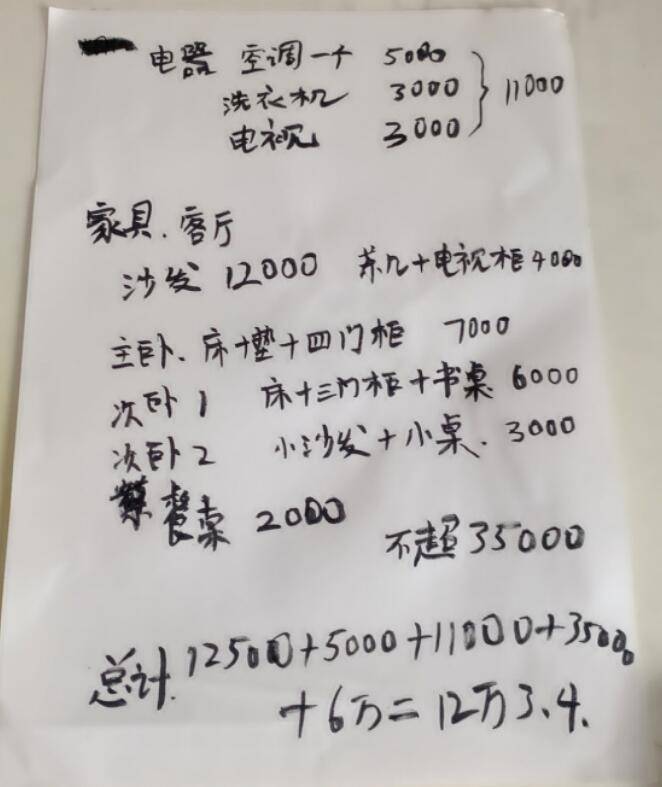 电器 空调一个 5000
洗衣机 3000 } 11000
电视 3000
家具.客厅
沙发 12000 茶几+电视柜4000
主卧.床+垫+四门柜 7000
次卧1 床+三门柜+书桌 6000
次卧2 小沙发+小桌.3000
餐桌 2000
不超35000
总计.12500+5000+11000+35000
+6万=12万3.4.